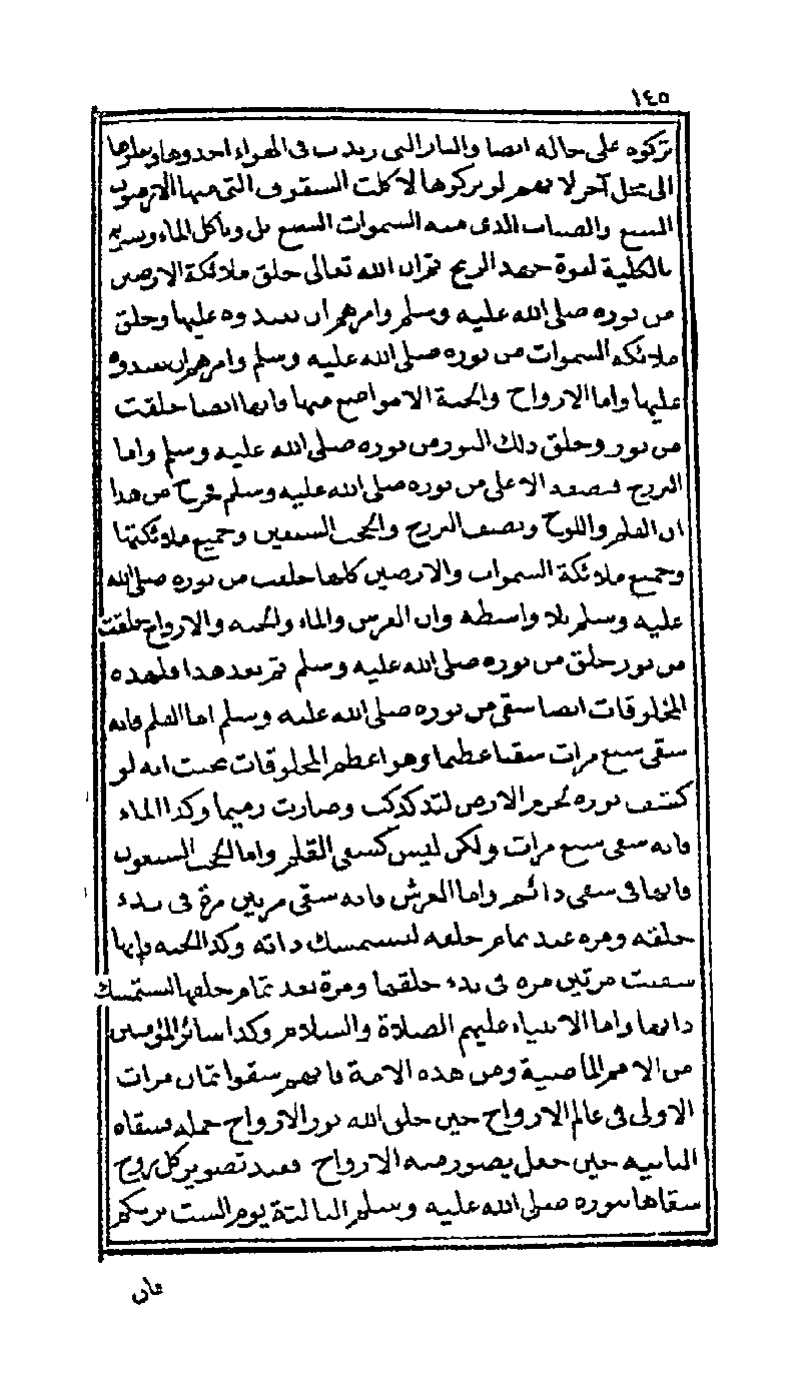 ١٤٥
تركوه على حاله ايضا والنار التى زيدت فى الهواء اخذوها ونقلوها
الى محل آخر لانهم لو تركوها لاكلت الشقوق التى فيها الارضون
السبع والضباب الذى منه السموات السبع بل وتأكل الماء وتشربه
بالكلية لقوة جهد الريح ثم ان الله تعالى خلق ملائكة الارضين
من نوره صلى الله عليه وسلم وامرهم ان يعبدوه عليها وخلق
ملائكة السموات من نوره صلى الله عليه وسلم وامرهم ان يعبدوه
عليها واما الارواح والجنة الا مواضع منها فانها ايضا خلقت
من نور وخلق ذلك النور من نوره صلى الله عليه وسلم واما
البرزخ فنصفه الاعلى من نوره صلى الله عليه وسلم فخرج من هذا
ان القلم واللوح ونصف البرزخ والحجب السبعين وجميع ملائكتها
وجميع ملائكة السموات والارضين كلها خلقت من نوره صلى الله
عليه وسلم بلا واسطة وان العرش والماء والجنة والارواح خلقت
من نور خلق من نوره صلى الله عليه وسلم ثم بعد هذا فلهذه
المخلوقات ايضا سقى من نوره صلى الله عليه وسلم اما القلم فانه
سقى سبع مرات سقيا عظيما وهو اعظم المخلوقات بحيث انه لو
كشف نوره لجرم الارض لتدكدكت وصارت رميما وكذا الماء
فانه سقى سبع مرات ولكن ليس كسقى القلم واما الحجب السبعون
فانها فى سقى دائم واما العرش فانه سقى مرتين مرة فى بدء
خلقه ومرة عند تمام خلقه لتستمسك ذاته وكذا الجنة فانها
سقيت مرتين مرة فى بدء خلقها ومرة بعد تمام خلقها لتستمسك
ذاتها واما الانبياء عليهم الصلاة والسلام وكذا سائر المؤمنين
من الامم الماضية ومن هذه الامة فانهم سقوا ثمان مرات
الاولى فى عالم الارواح حين خلق الله نور الارواح جملة فسقاه
الثانية حين جعل يصور منه الارواح فعند تصوير كل روح
سقاها بنوره صلى الله عليه وسلم الثالثة يوم الست بربكم
فان